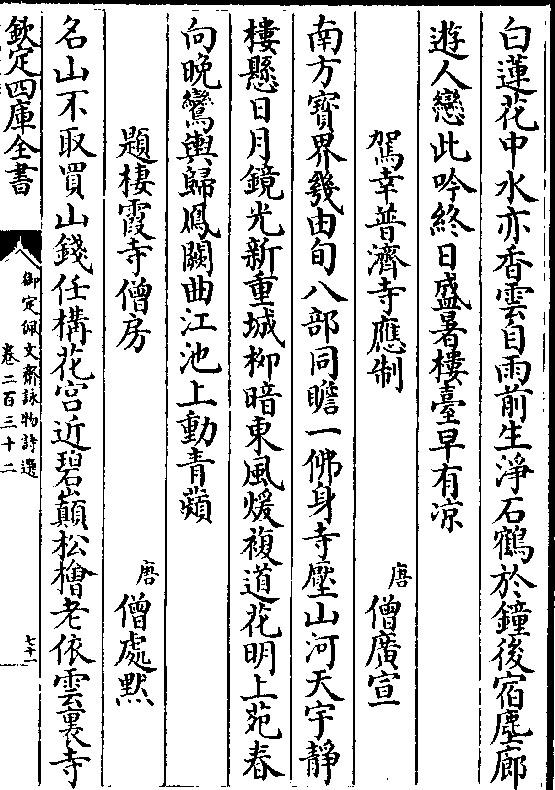 白蓮花中水亦香雲自雨前生淨石鶴於鐘後宿塵廊
遊人戀此吟終日盛暑樓臺早有凉
駕幸普濟寺應制 唐 僧廣宣
南方寶界幾由旬八部同瞻一佛身寺壓山河天宇靜
樓懸日月鏡光新重城柳暗東風煖複道花明上苑春
向晚鸞輿歸鳳闕曲江池上動青蘋
題棲霞寺僧房 唐 僧處黙
名山不取買山錢任構花宮近碧巔松檜老依雲裏寺
欽定四庫全書
御定佩文齋詠物詩選
卷二百三十二